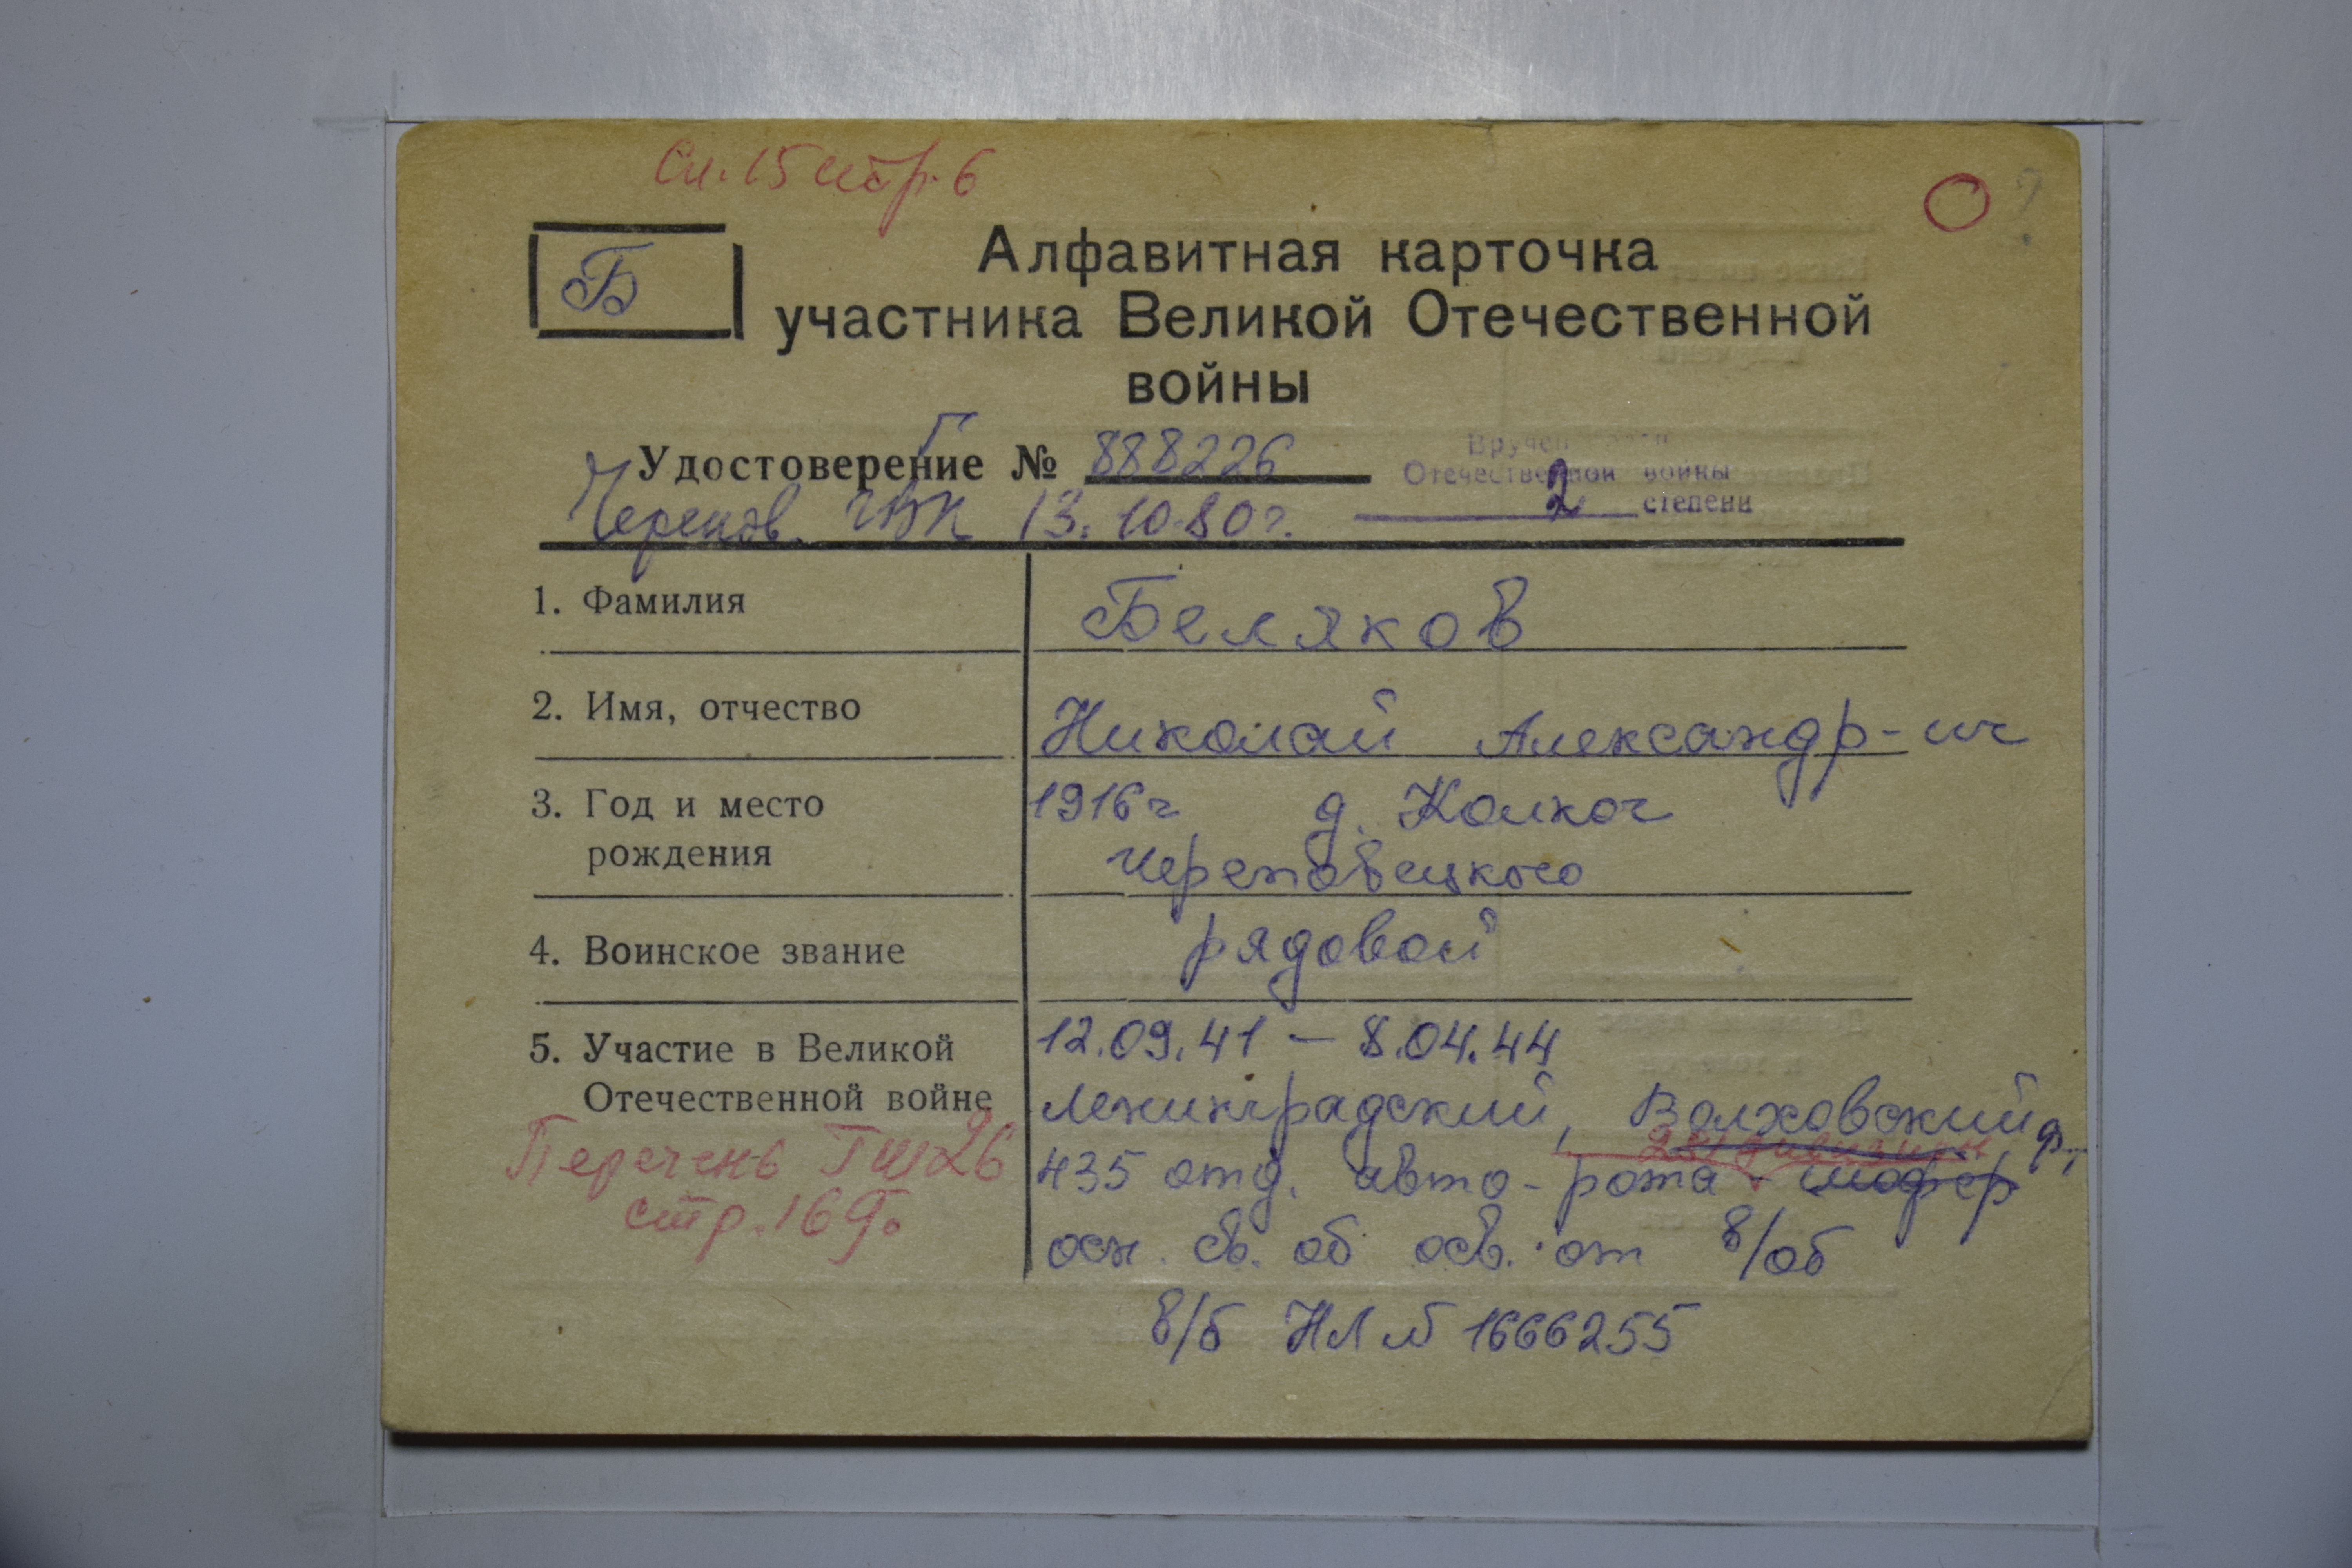 Сп. 15 стр. 6
Б
Алфавитная карточка
участника Великой Отечественной
войны
Г
Удостоверение № 888226
Вручен
Отечественной войны
2 степени
Черепов. ГВК 13.10.80г.
1. Фамилия
Беляков
2. Имя, отчество
Николай Александр-ич
3. Год и место
рождения
1916г д. Колкач
Череповецкого
4. Воинское звание
рядовой
5. Участие в Великой
Отечественной войне
12.09.41 — 8.04.44
Ленинградский, Волховский ф.,
281 дивизии
435 отд. авто-рота шофер
осн. св. об осв. от в/об
в/б НЛ № 1666255
Перечень ГШ 26
стр. 169.